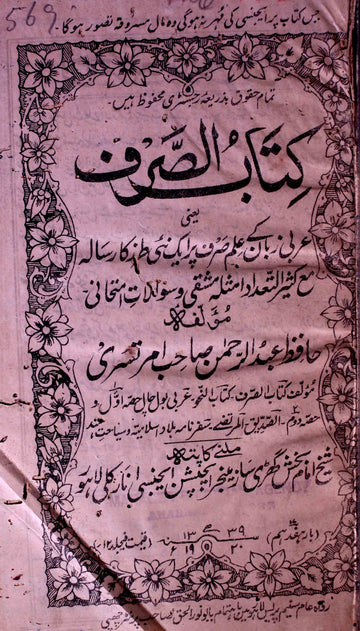 569
جس کتاب پر ایجنسی کی مہر نہ ہوگی وہ مال مسروقہ تصور ہوگا۔
تمام حقوق بذریعہ رجسٹری محفوظ ہیں۔
کتاب الصرف
یعنی
عربی زبان کے علم صرف پر ایک نئی طرز کا رسالہ
مع کثیر التعداد امثلہ مشقی و سوالات امتحانی
مؤلفہ
حافظ عبدالرحمن صاحب امرتسری
مؤلف کتاب الصرف۔ کتاب النحو۔ عربی بول چال حصہ اول و
حصہ دوم۔ الصدیق۔ المرتضے۔ سفرنامہ بلاد اسلامیہ و سیاحت ہند
ملنے کا پتہ
شیخ امام بخش گھڑی ساز مینجر ایجنسی انارکلی لاہور
۱۳۳۹ ھ
۱۹۲۰ ء